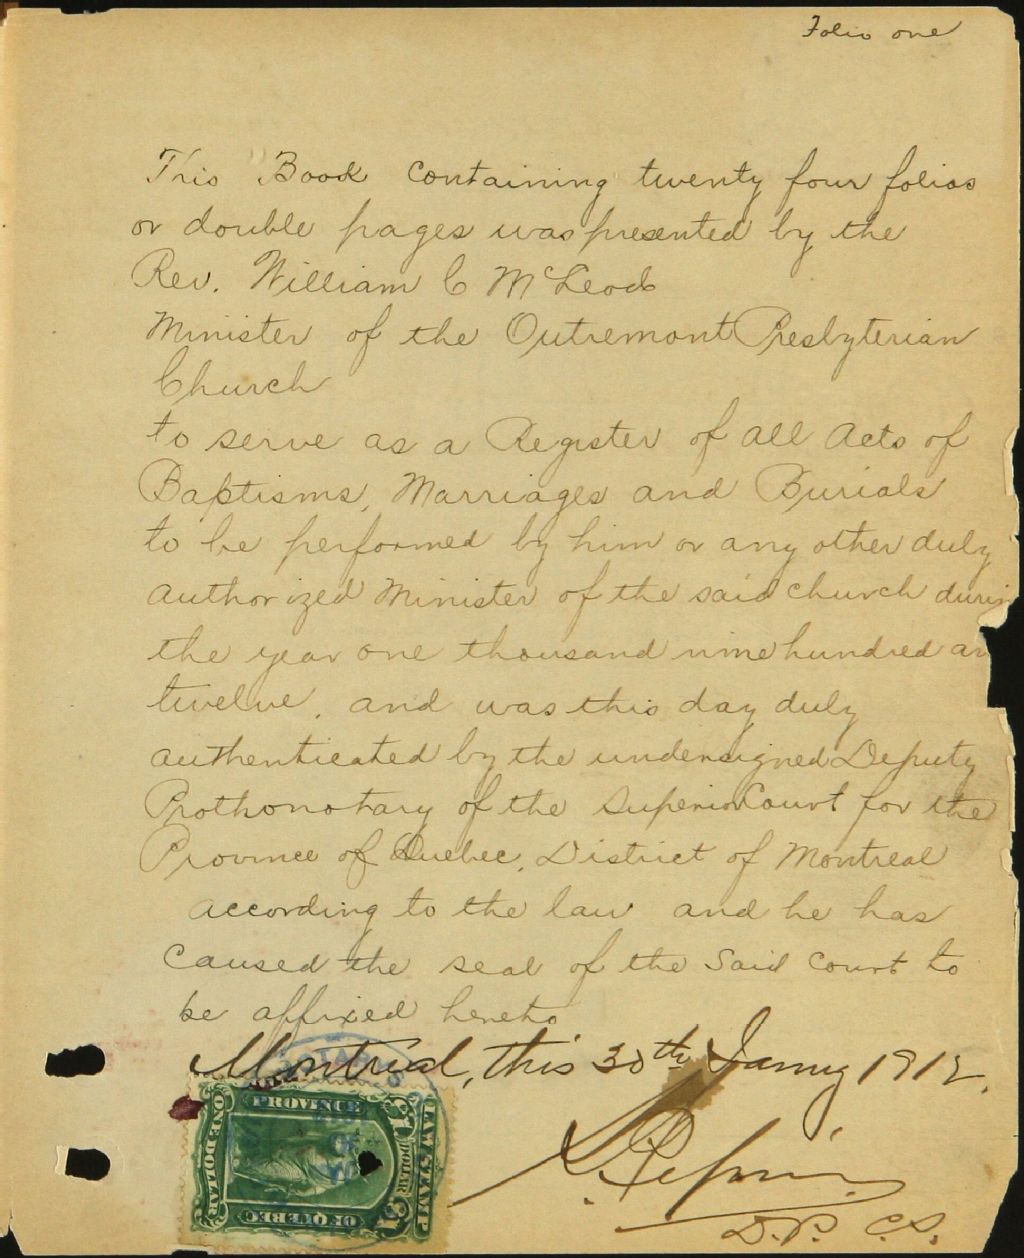 Folio one
This Book containing twenty four folios
or double pages was presented by the
Rev. William C McLeod
Minister of the Outremont Presbyterian
Church
to serve as a Register of all Acts of
Baptisms, Marriages and Burials
to be performed by him or any other duly
authorized Minister of the said church durin
the year one thousand nine hundred an
twelve, and was this day duly
authenticated by the undersigned Deputy
Prothonotary of the Superior Court for the
Province of Quebec, District of Montreal
according to the law and he has
caused the seal of the Said Court to
be affixed hereto
Montreal, this 30th 1912.
D.P. C.S.
LAW STAMP
$1 DOLLAR $1
PROVINCE
OF QUEBEC
ONE DOLLAR